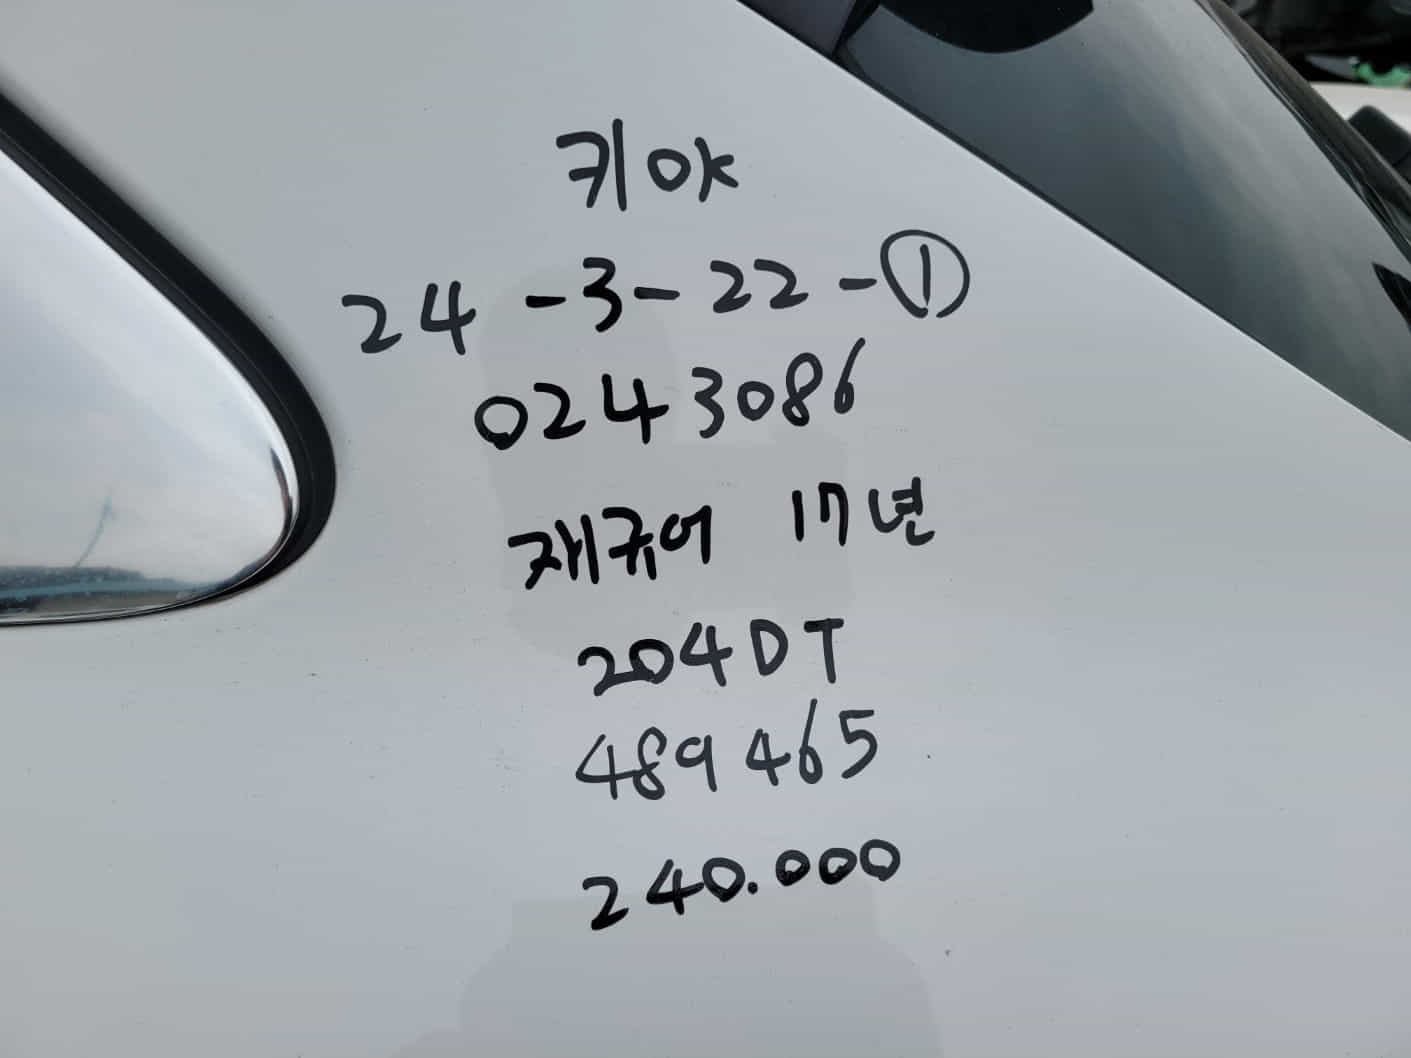 키OK
24-3-22-①
0243086
재규어 17년
204DT
489465
240.000